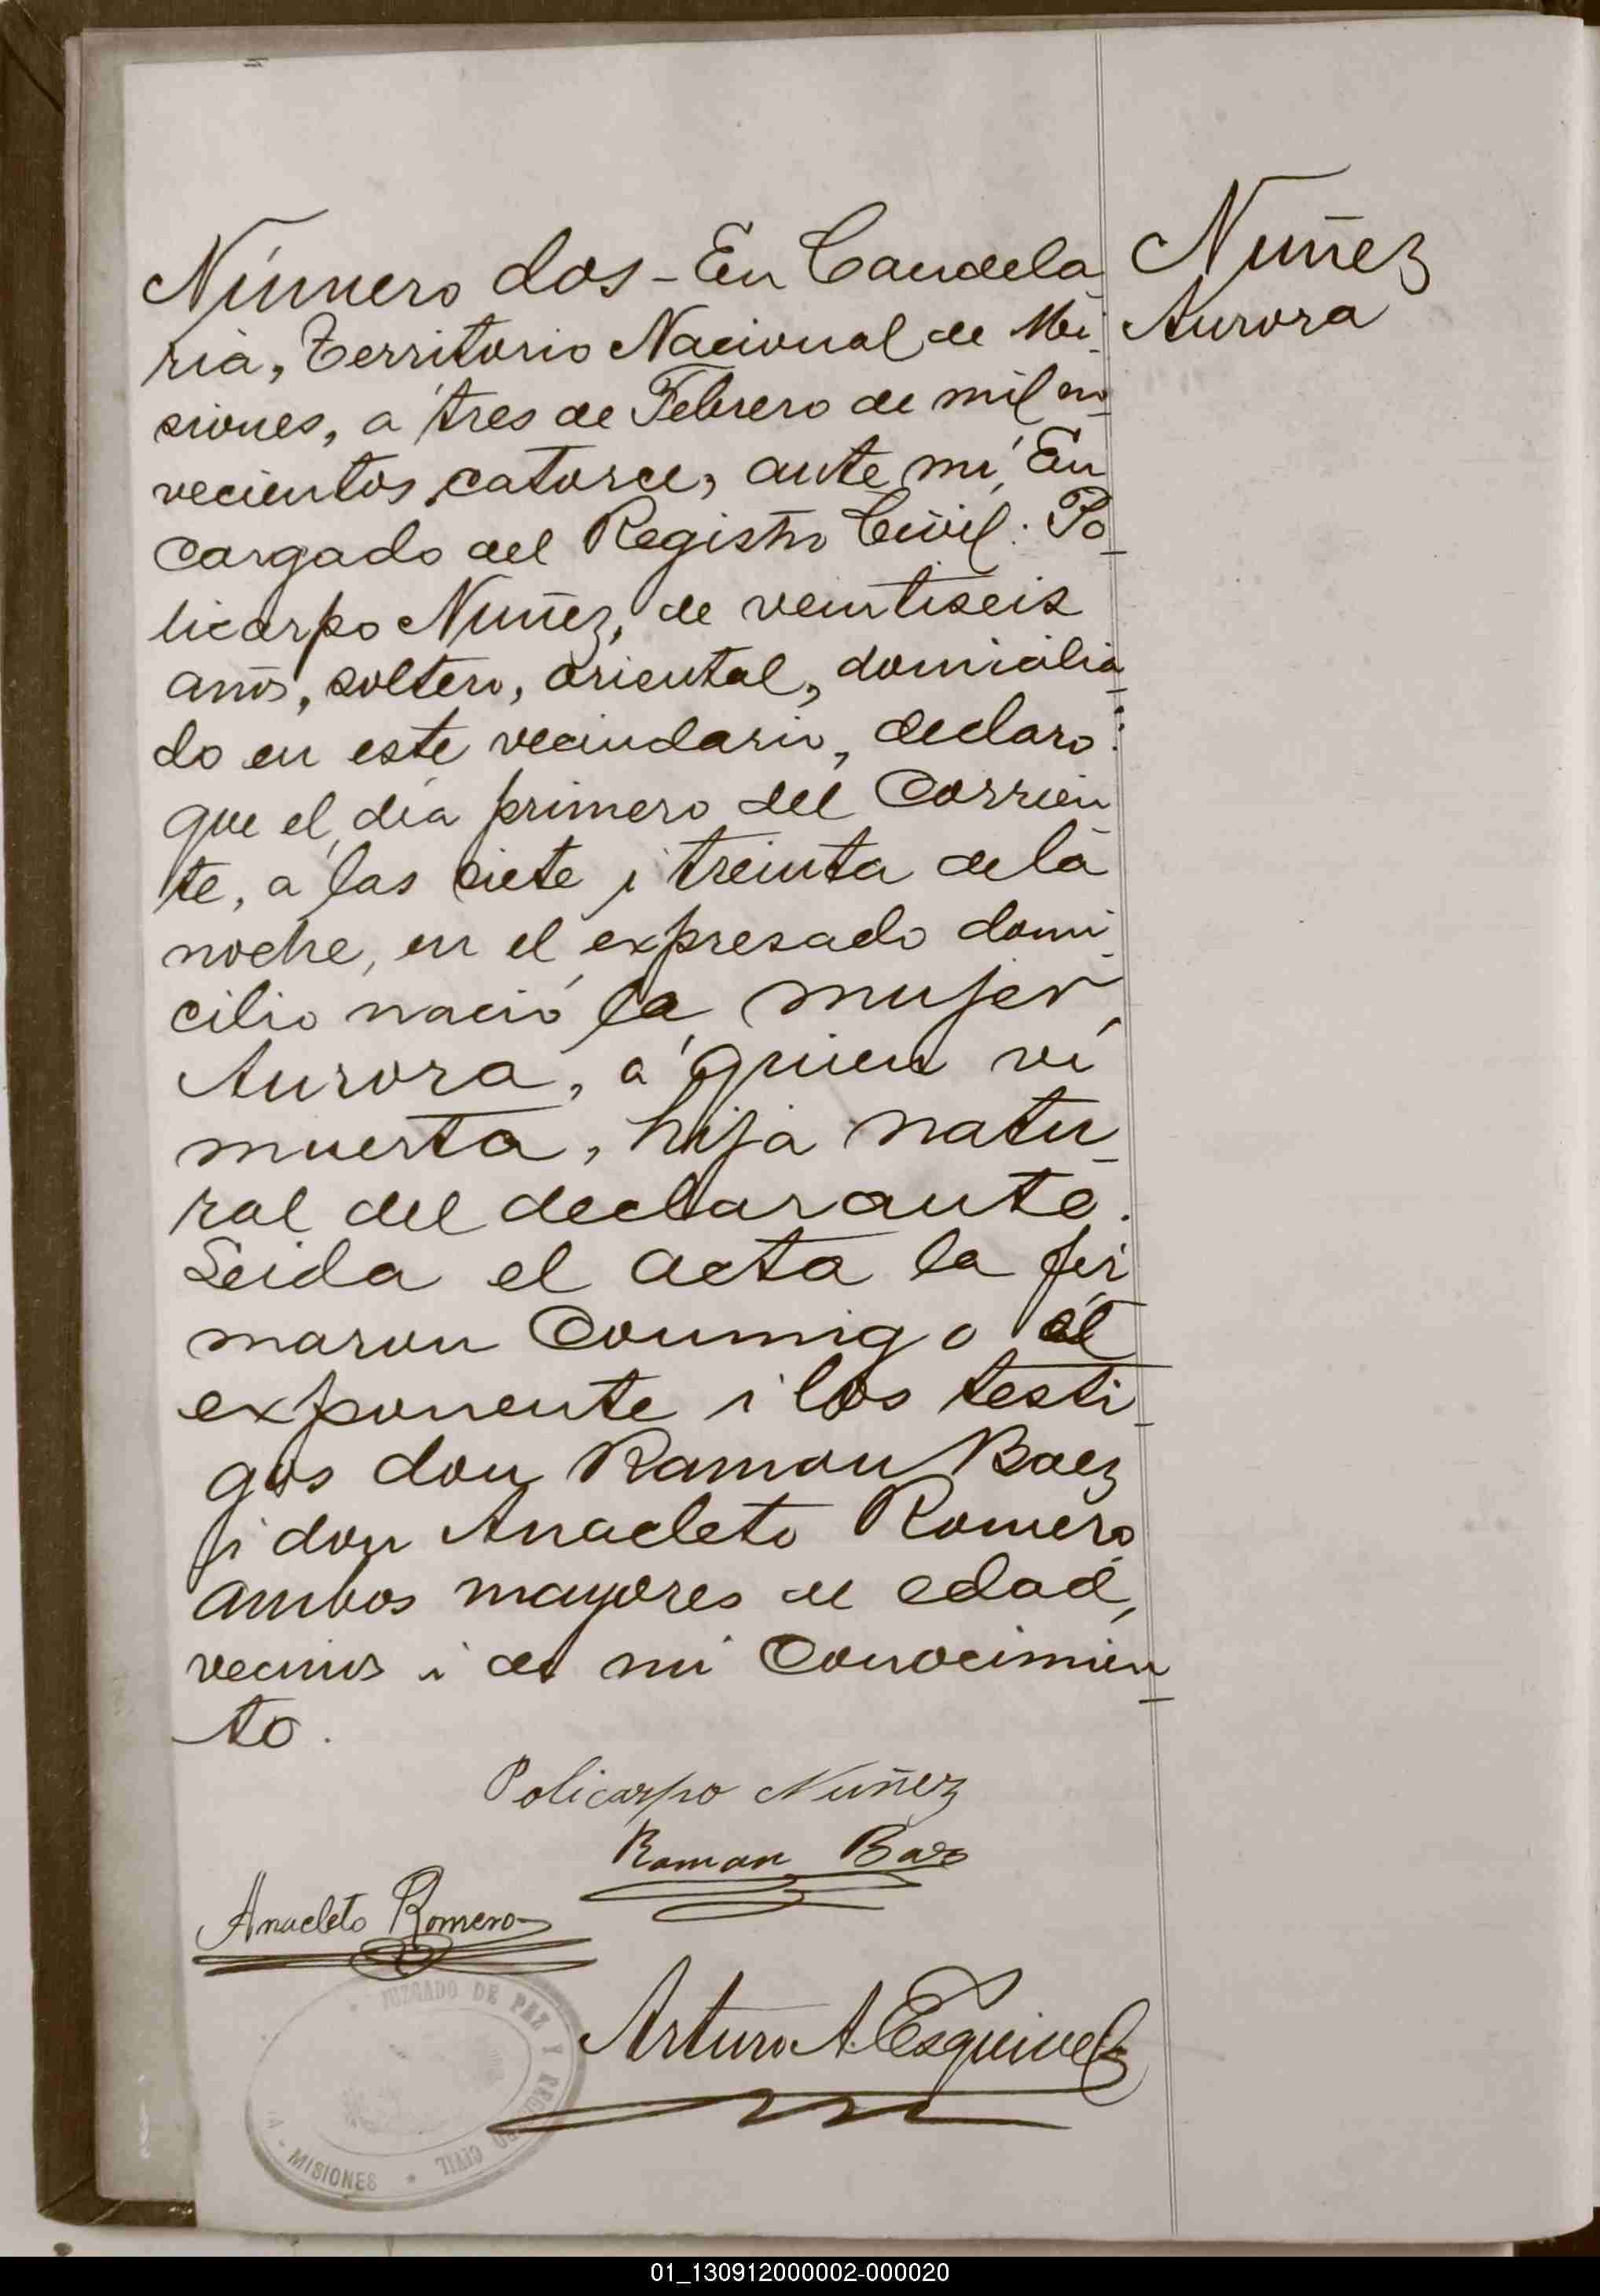 Número dos - En Candela
ria, Territorio Nacional de Mi
siones, a tres de Febrero de mil no
vecientos catorce, ante mi, En
cargado del Registro Civil: Po
licarpo Nuñez, de veintiseis
años, soltero, oriental, domicilia
do en este vecindario, declaro:
que el día primero del corrien
te, a las siete i treinta de la
noche, en el expresado domi
cilio nació la mujer
Aurora, a quien vi
muerta, hija natu
ral del declarante.
Leida el acta la fir
maron conmigo el
exponente i los testi
gos don Ramon Baez
i don Anacleto Romero
ambos mayores de edad,
vecinos i de mi conocimien
to.
Nuñez
Aurora
Policarpo Nuñez
Ramon Baez
Anacleto Romero
Arturo A. Esquivel
JUZGADO DE PAZ Y REGISTRO CIVIL
MISIONES
01_130912000002-000020